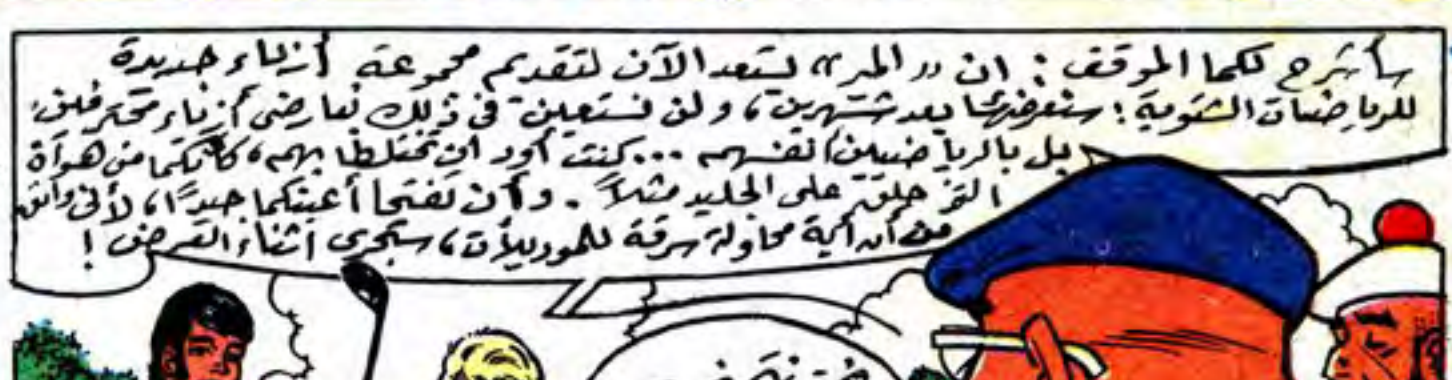 سأشرح لكما الموقف : ان «المر» تستعد الآن لتقديم مجموعة أزياء جديدة
للرياضات الشتوية ! ستعرضها بعد شهرين ، ولن نستعين فى ذلك بعارضى أزياء محترفين،
بل بالرياضيين أنفسهم ... كنت أود أن تختلطا بهم، كأنكما من هواة
التزحلق على الجليد مثلاً . وأن تفتحا أعينكما جيدًا، لأنى واثق
من أن أية محاولة سرقة للموديلات ، ستجرى أثناء العرض !